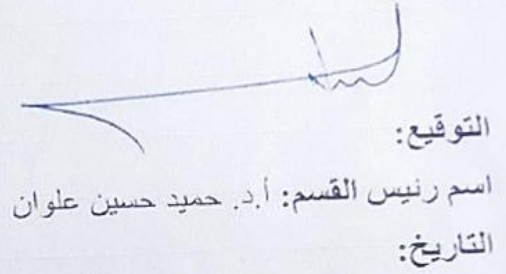 التوقيع:
اسم رئيس القسم: أ.د. حميد حسين علوان
التاريخ: